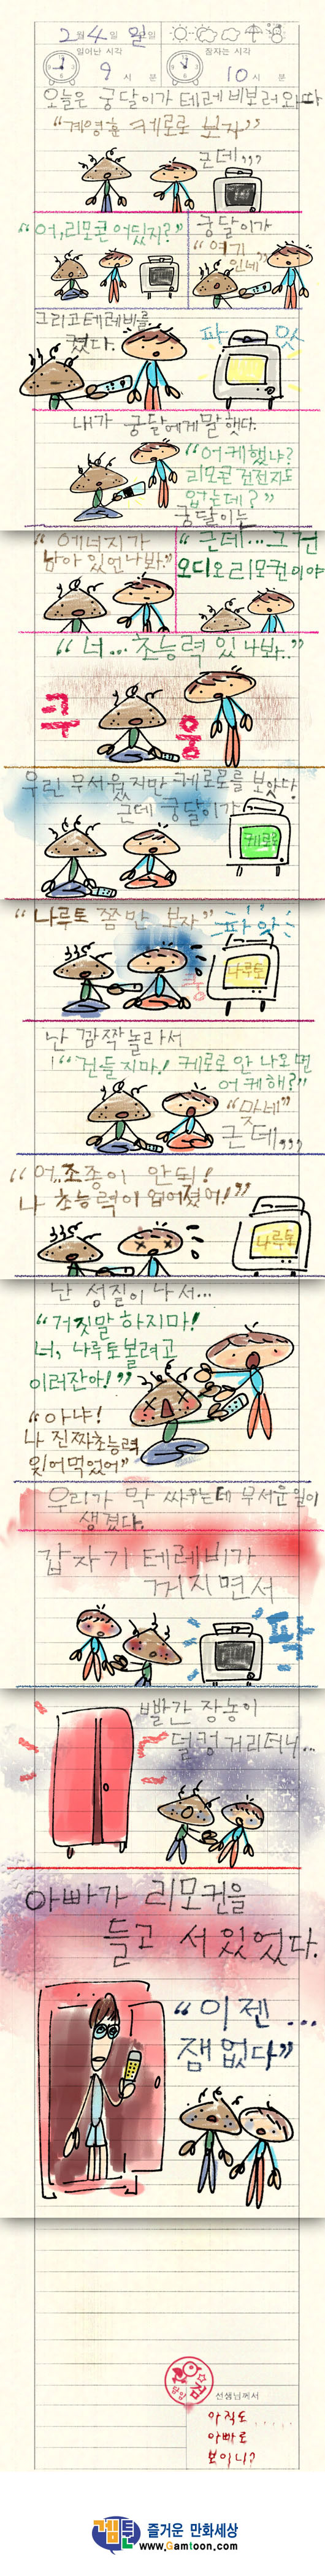 2월 4일 월일
일어난 시각
잠자는 시각
9 시 분
10 시 분
오늘은 궁달이가 테레비보러 와따
“계영훈 케로로 보자”
근데,,,
“어, 리모콘 어딨지?”
궁달이가
“여기
인네”
그리고 테레비를
켰다.
파 앗
내가 궁달에게 말했다.
“어케했냐?
리모콘 건전지도
없는데?”
궁달이는
“에너지가
남아 있었나봐.”
“근데...그건
오디오 리모컨이야
“너... 초능력 있나봐..”
쿠
웅
우린 무서웠지만 케로로를 보았다.
근데 궁달이가
케로로
“나루토 쫌만 보자”
파 앗
나루토
난 깜짝 놀라서
“건들지마! 케로로 안 나오면
어케해?”
“맞네”
근데,,,
“어..조종이 안돼!
나 초능력이 없어졌어!”
나루토
난 성질이 나서...
“거짓말 하지마!
너, 나루토볼려고
이러잖아!”
“아냐!
나 진짜초능력
잊어먹었어”
우리가 막 싸우는데 무서운 일이
생겼다.
갑자기 테레비가
꺼지면서
팍
빨간 장농이
덜컹거리더니...
아빠가 리모컨을
들고 서 있었다.
“이젠...
잼없다”
선생님께서
아직도 .....
아빠로
보이니?
겜툰 즐거운 만화세상
www.Gamtoon.com